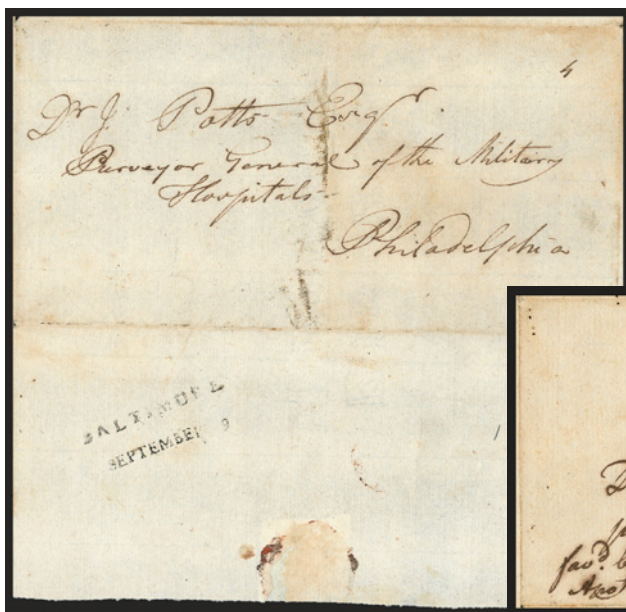 4
Dr J. Potts Esqr
Purveyor General of the Military
Hospitals
Philadelphia
BALTIMORE
SEPTEMBER 9
favd. b
Apot